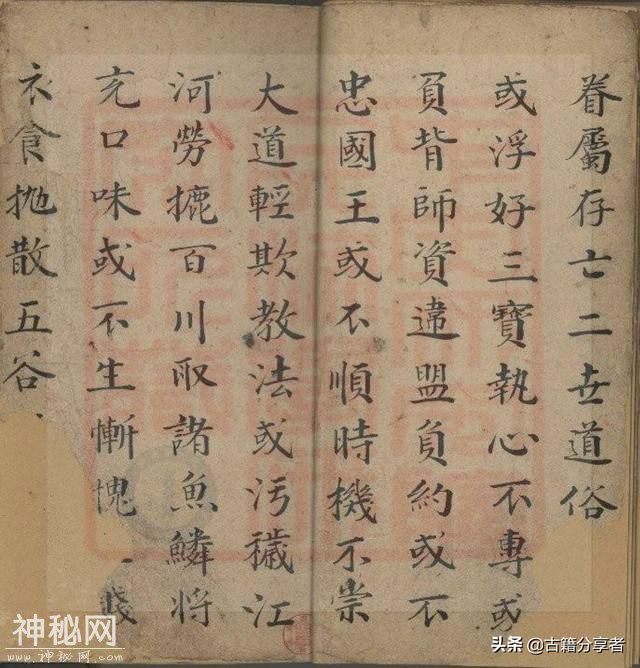 眷屬存亡二世道俗
或浮好三寶執心不專或
負背師資違盟負約或不
忠國王或不順時機不崇
大道輕欺教法或污穢江
河勞摝百川取諸魚鱗將
充口味或不生慚愧
衣食抛散五谷
神秘网
www.神秘网.com
头条 @古籍分享者